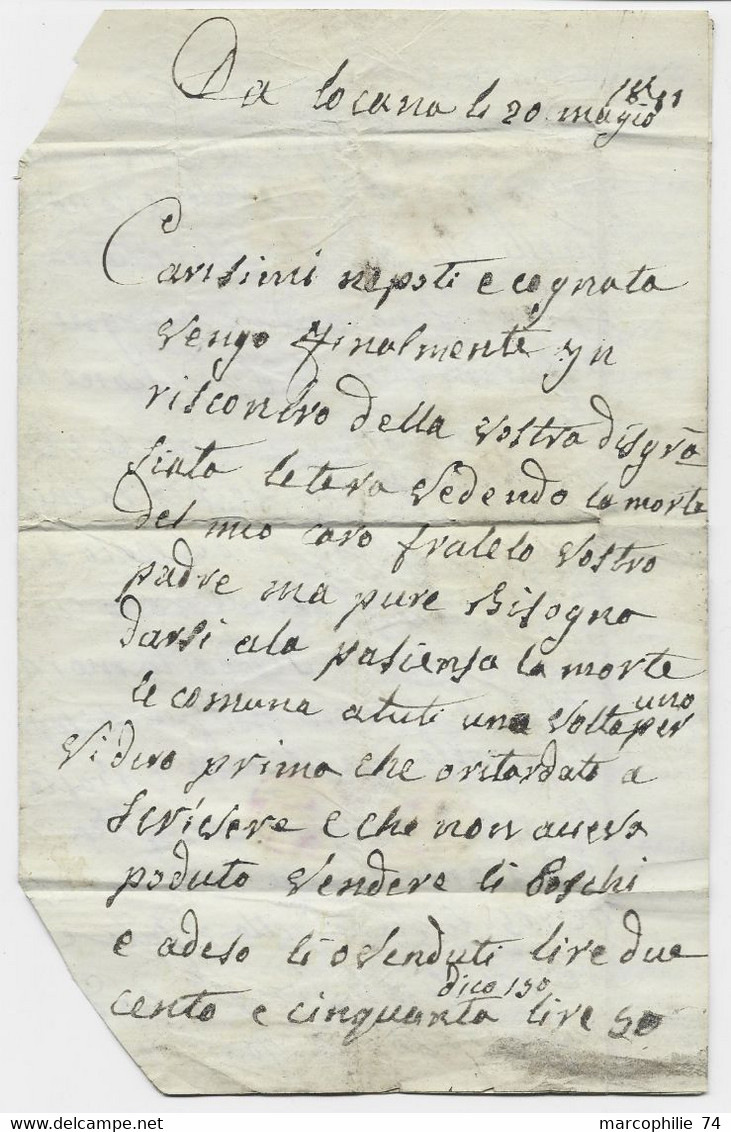 Da Locana li 20 magio
Carisimi nepoti e cognata
Vengo finalmente yn
riscontro della vostra disgra
siata letera vedendo la morte
del mio caro fratelo vostro
padre ma pure Bisogna
darsi ala pasiensa la morte
le comuna a tuti una volta per uno
Vi diro prima che o ritardato a
scrivere e che non aveva
poduto vendere li Boschi
e adeso li o venduti lire due
cento e cinquanta lire
dico
marcophilie 74